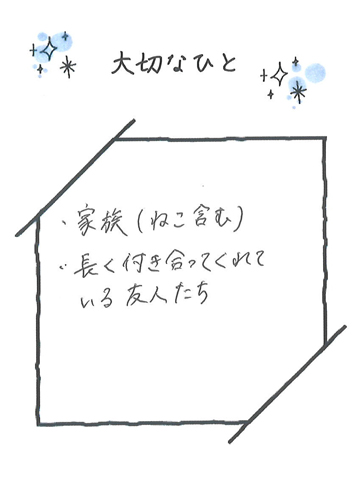 大切なひと
・家族(ねこ含む)
・長く付き合ってくれて
いる友人たち